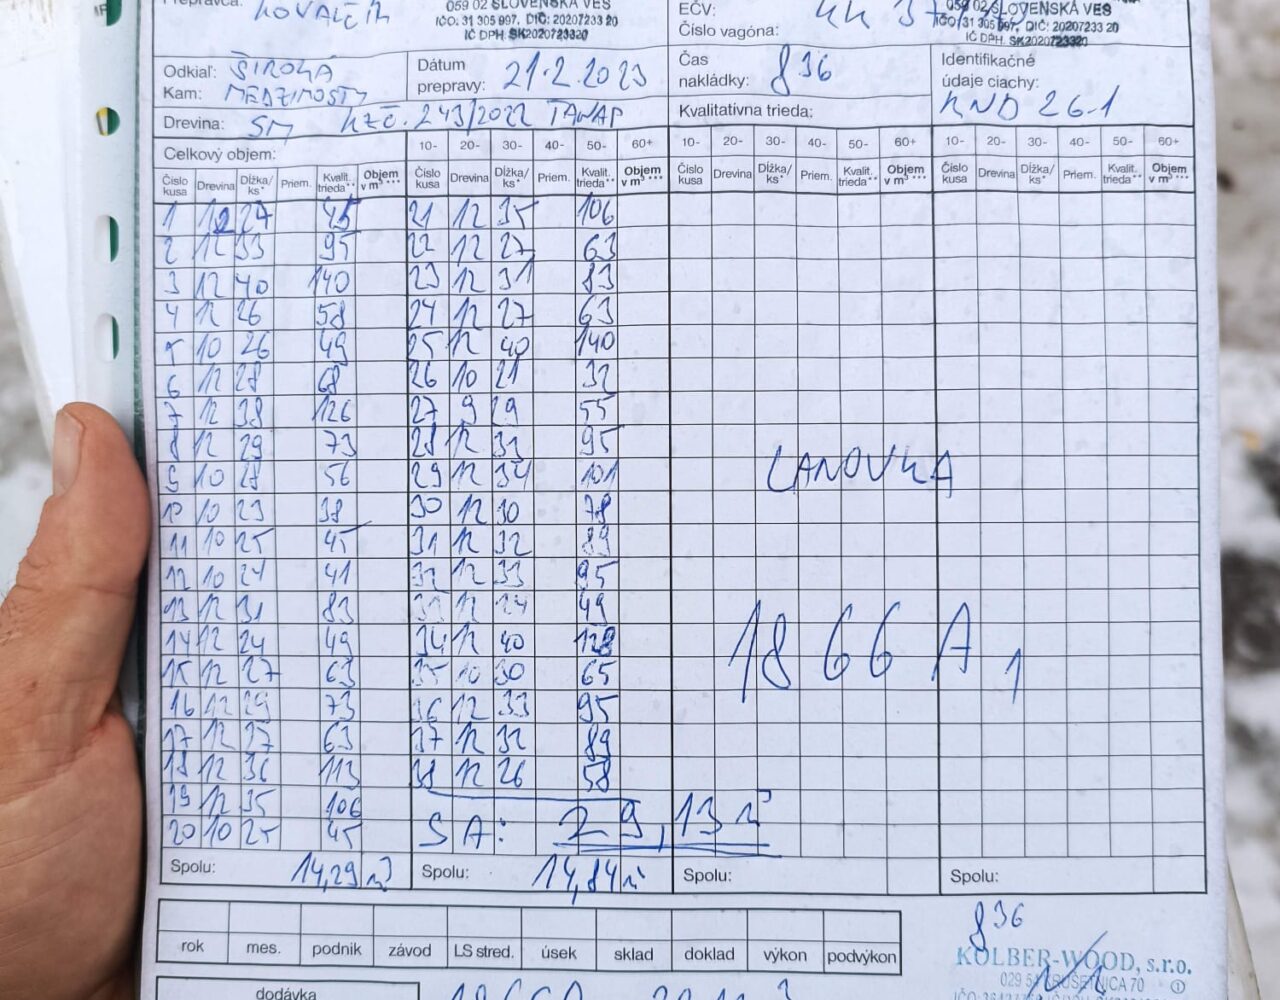 Prepravca: KOVALČÍK
059 02 SLOVENSKÁ VES
IČO: 31 305 997, DIČ: 2020723320
IČ DPH: SK2020723320
EČV: KK
Číslo vagóna:
059 02 SLOVENSKÁ VES
IČO: 31 305 997, DIČ: 2020723320
IČ DPH: SK2020723320
Odkiaľ: ŠIROKÁ
Kam: MEDZIMOSTY
Dátum prepravy: 21.2.2023
Čas nakládky: 836
Identifikačné údaje ciachy: KND 26-1
Drevina: SM KZČ. 243/2022 TANAP
Kvalitatívna trieda:
Celkový objem:
10- 20- 30- 40- 50- 60+ 10- 20- 30- 40- 50- 60+ 10- 20- 30- 40- 50- 60+
Číslo kusa Drevina Dĺžka/ks* Priem. Kvalit. trieda** Objem v m³*** Číslo kusa Drevina Dĺžka/ks* Priem. Kvalit. trieda** Objem v m³*** Číslo kusa Drevina Dĺžka/ks* Priem. Kvalit. trieda** Objem v m³*** Číslo kusa Drevina Dĺžka/ks* Priem. Kvalit. trieda** Objem v m³***
1 12 27 21 12 35 106
2 12 33 95 22 12 27 63
3 12 40 140 23 12 31 83
4 12 26 58 24 12 27 63
5 10 26 49 25 12 40 140
6 12 28 68 26 10 21 32
7 12 38 126 27 9 29 55
8 12 29 73 28 12 33 95
9 10 28 56 29 12 34 101
10 10 23 38 30 12 30 78
11 10 25 45 31 12 32 89
12 10 24 41 32 12 33 95
13 12 31 83 33 12 24 49
14 12 24 49 34 12 40 128
15 12 27 63 35 10 30 65
16 12 29 73 36 12 33 95
17 12 27 63 37 12 32 89
18 12 36 113 38 12 26 58
19 12 35 106
20 10 25 45
SA: 29,13 m³
LANOVKA
1866 A1
Spolu: 14,29 m³ Spolu: 14,84 m³ Spolu: Spolu:
rok mes. podnik závod LS stred. úsek sklad doklad výkon podvýkon
836
KOLBER-WOOD, s.r.o.
dodávka